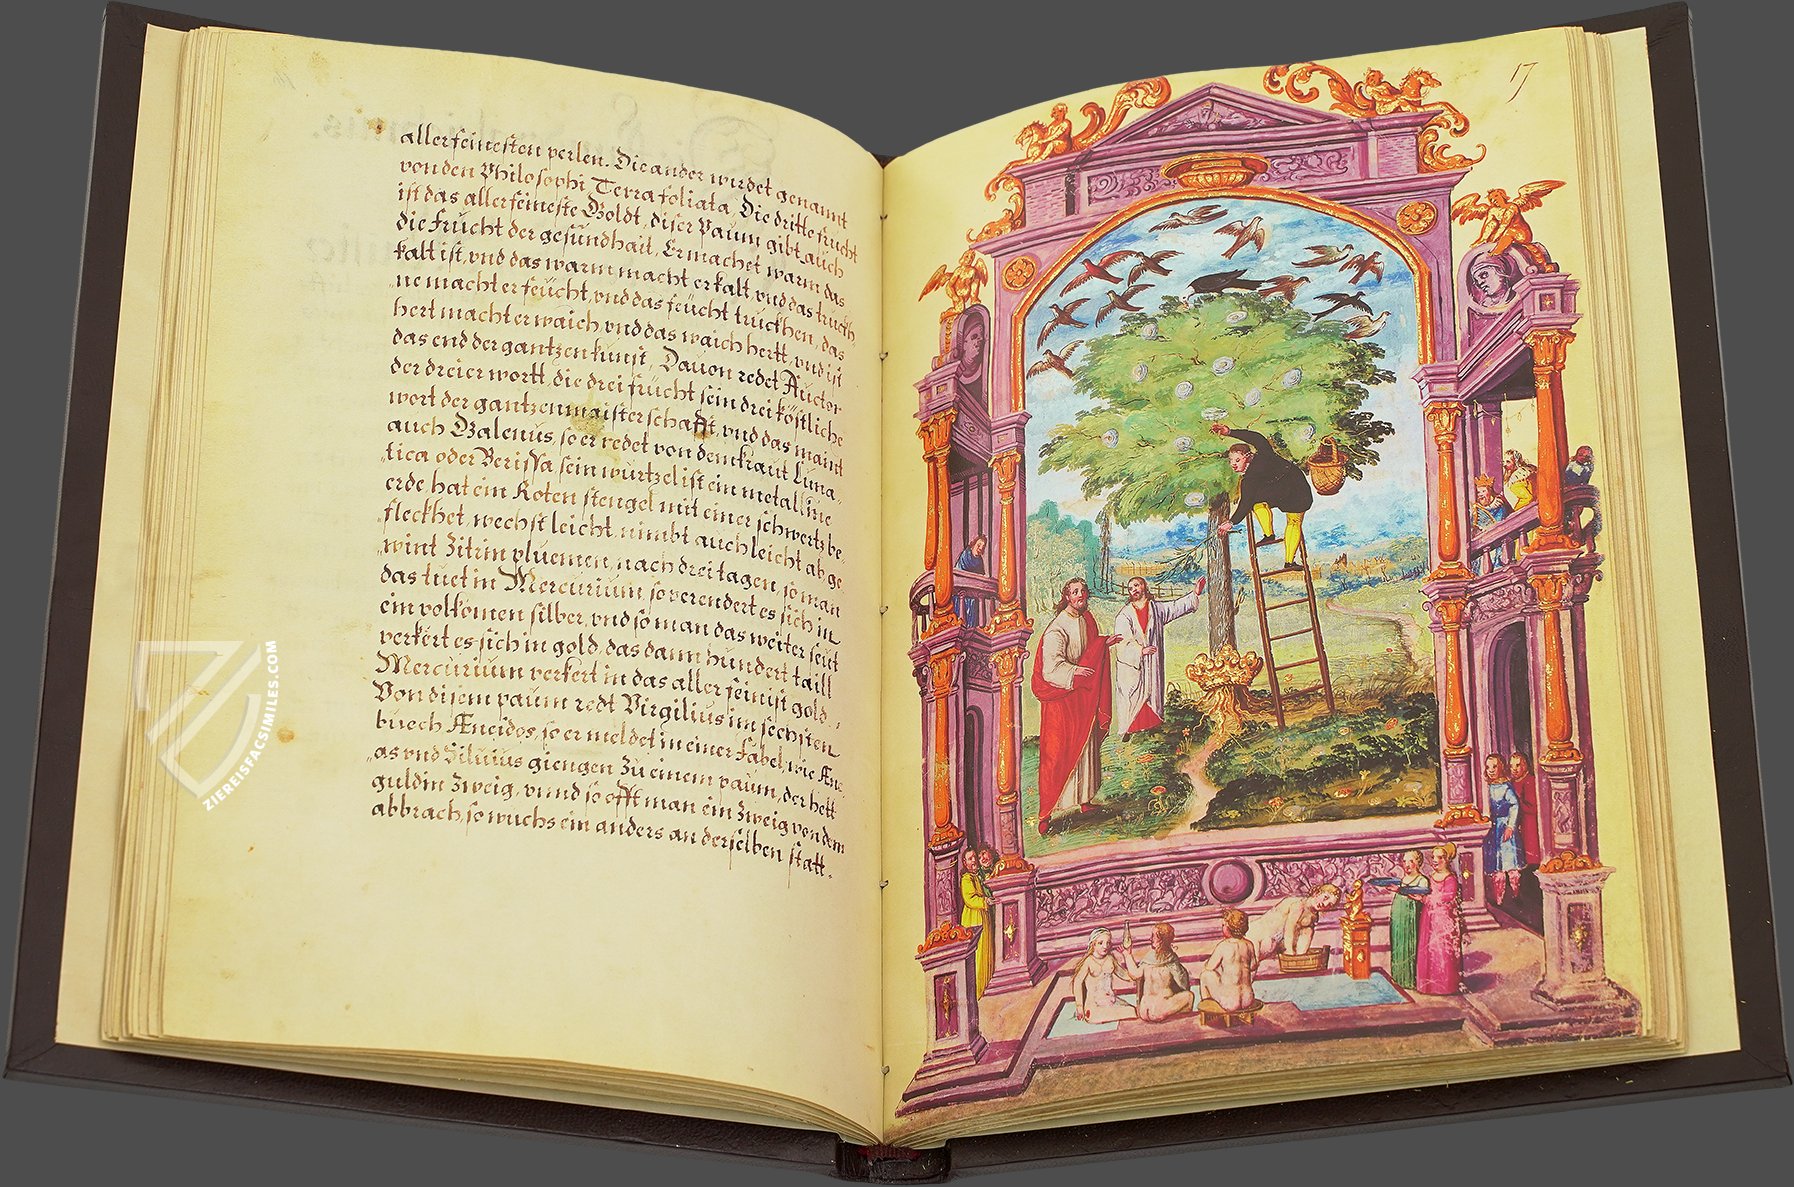 allerfeinesten perlen. Die ander wirdet genannt
von den Philosophi, Terra foliata, Die dritte frucht
ist das allerfeineste Goldt, diser Paum gibt auch
die frucht der gesundhait, Er machet warm das
kalt ist, vnd das warm macht er kalt, vnd das truckh
ne macht er feücht, vnd das feücht truckhen, das
hert macht er waich, vnd das waich hertt, vnd ist
das end der gantzen kunst, Dauon redet Auctor
der dreier wortt, die drei frücht sein drei köstliche
wort der gantzen maisterschafft, vnd das maint
auch Galenus, so er redet von dem kraut Luna
tica oder Berissa sein wurtzel ist ein metalline
erde, hat ein Roten stengel mit einer schwertz be
fleckhet, wechst leicht, nimbt auch leicht ab ge
wint Zitrin pluemen, nach drei tagen, so man
das tuet in Mercurium, so verendert es sich in
ein volkomen silber, vnd so man das weiter seüt
verkert es sich in gold, das dann hundert taill
Mercurium verkert in das aller feinist gold.
Von disem paum redt Virgilius im sechsten
buech Æneidos, so er meldet in einer fabel, wie Æne
as vnd Siluius giengen zu einem paum, der hett
guldin Zweig, vnnd so offt man ein Zweig von dem
abbrach, so wuchs ein anders an derselben statt.
17
ZIEREISFACSIMILES.COM